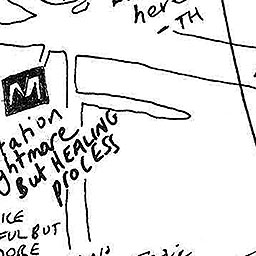 here
- TH
M
tation
ghtmare
BUT HEALING
PROCESS
ICE
FUL BUT
MORE